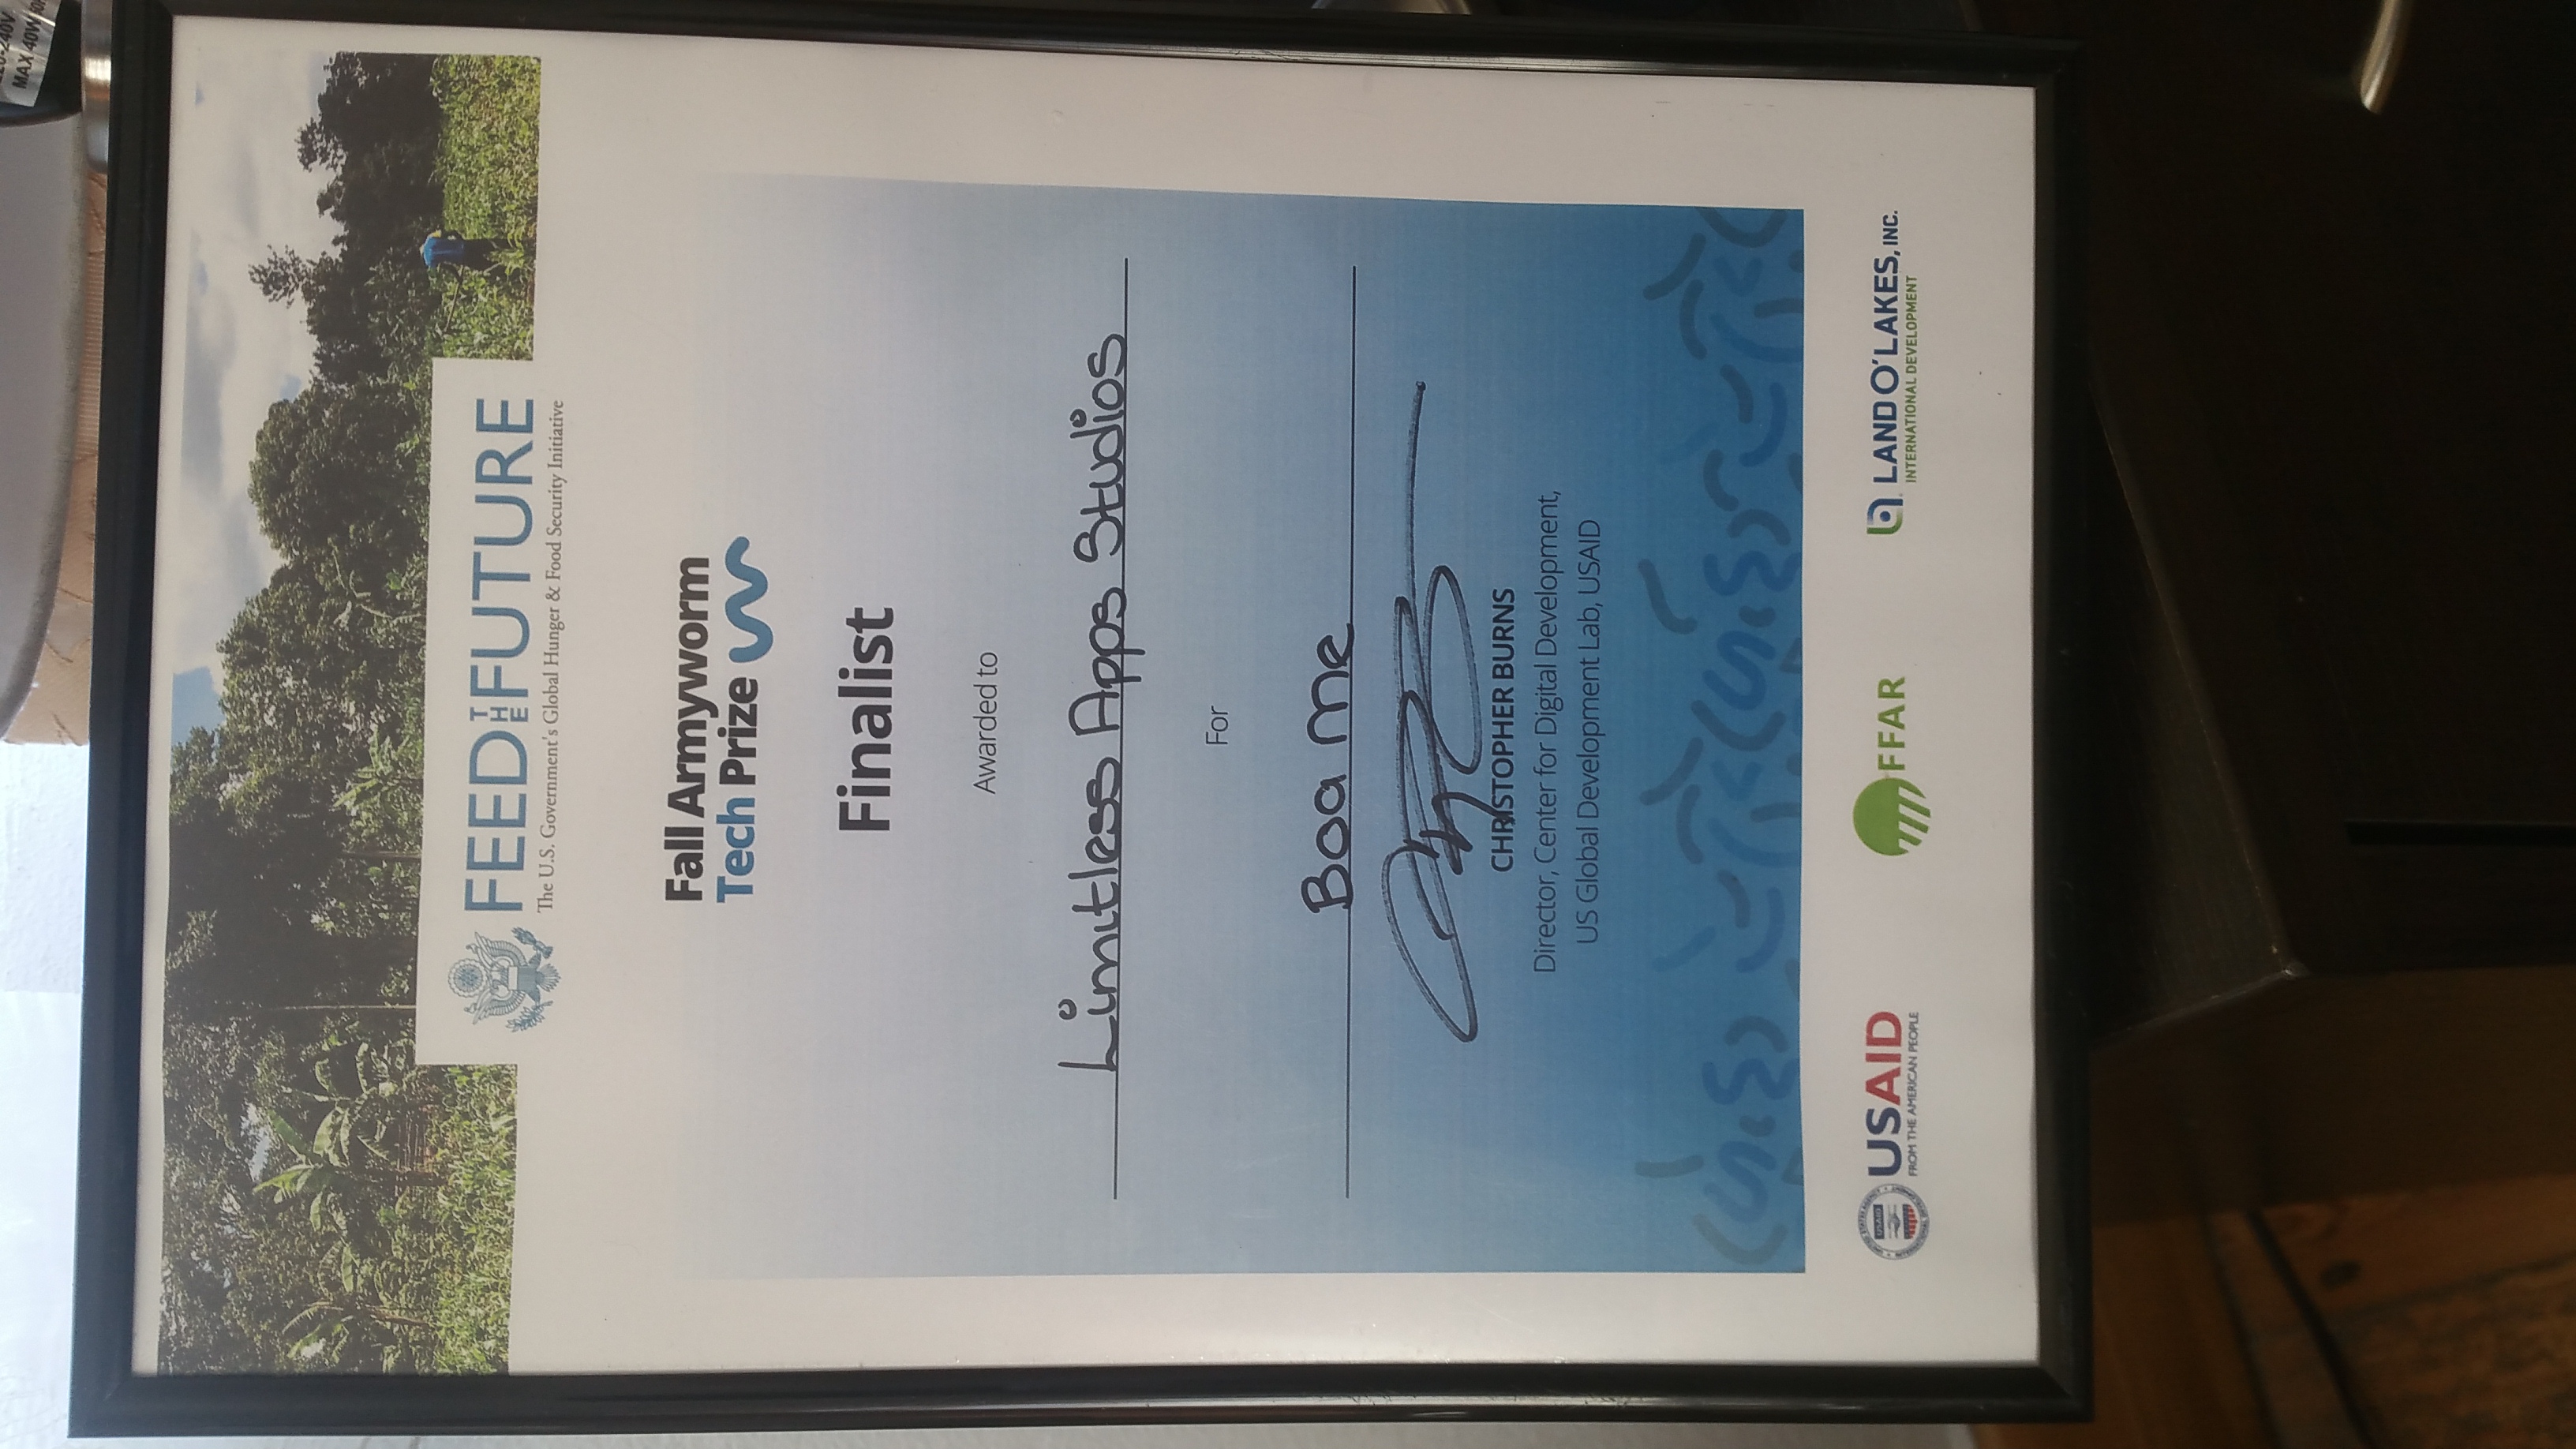 220-240V
MAX 40W
FEED THE FUTURE
The U.S. Government's Global Hunger & Food Security Initiative
Fall Armyworm
Tech Prize
Finalist
Awarded to
Limitless Apps Studios
For
Boa Me
CHRISTOPHER BURNS
Director, Center for Digital Development,
US Global Development Lab, USAID
USAID
FROM THE AMERICAN PEOPLE
FFAR
LAND O'LAKES, INC.
INTERNATIONAL DEVELOPMENT